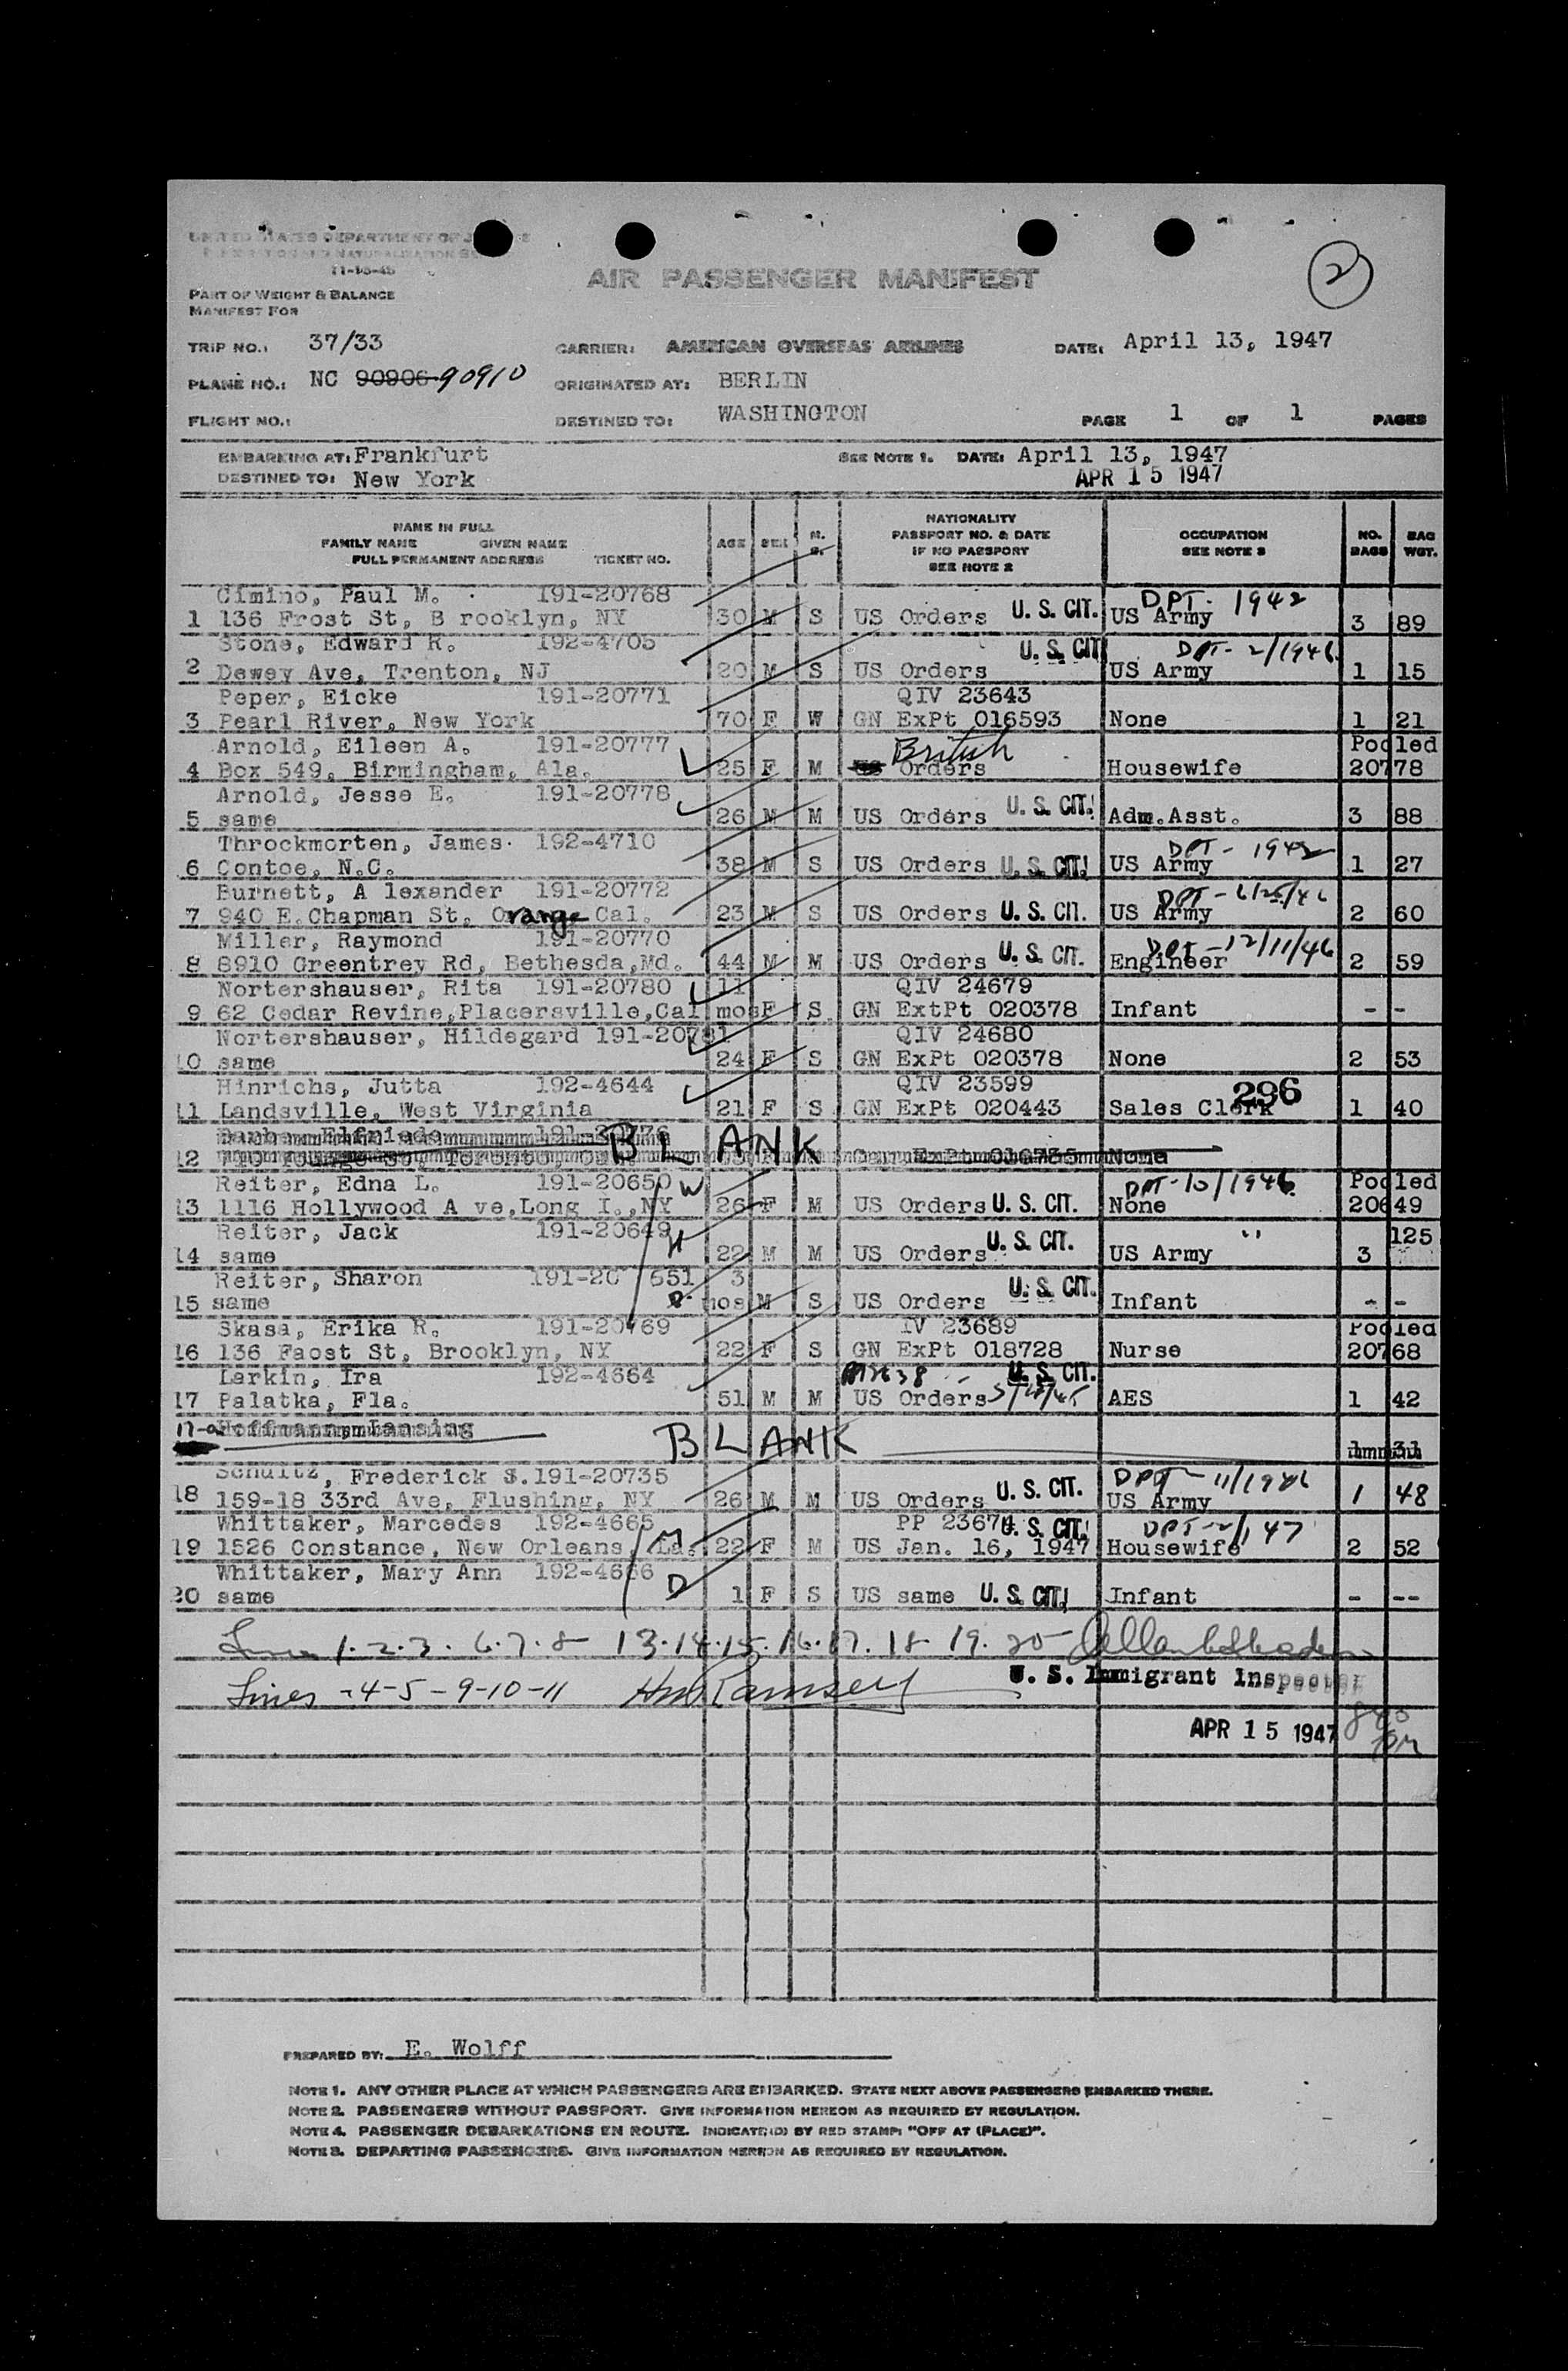 UNITED STATES DEPARTMENT OF
11-15-45
AIR PASSENGER MANIFEST
2
PART OF WEIGHT & BALANCE
MANIFEST FOR
TRIP NO.: 37/33 CARRIER: AMERICAN OVERSEAS AIRLINES DATE: April 13, 1947
PLANE NO.: NC 90906 90910 ORIGINATED AT: BERLIN
FLIGHT NO.: DESTINED TO: WASHINGTON PAGE 1 OF 1 PAGES
EMBARKING AT: Frankfurt SEE NOTE 1. DATE: April 13, 1947
DESTINED TO: New York APR 15 1947
NAME IN FULL
FAMILY NAME GIVEN NAME
FULL PERMANENT ADDRESS TICKET NO.
AGE SEX M. S.
NATIONALITY
PASSPORT NO. & DATE
IF NO PASSPORT
SEE NOTE 2
OCCUPATION
SEE NOTE 3
NO. BAGS
BAG WGT.
Cimino, Paul M. 191-20768 DPT- 1942
1 136 Frost St, B rooklyn, NY 30 M S US Orders U. S. CIT. US Army 3 89
Stone, Edward R. 192-4705 U. S. CIT DPT- 2/1946
2 Dewey Ave, Trenton, NJ 20 M S US Orders US Army 1 15
Peper, Eicke 191-20771 QIV 23643
3 Pearl River, New York 70 F W GN ExPt 016593 None 1 21
Arnold, Eileen A. 191-20777 British Pooled
4 Box 549, Birmingham, Ala. 25 F M US Orders Housewife 20778
Arnold, Jesse E. 191-20778
5 same 26 M M US Orders U. S. CIT. Adm.Asst. 3 88
Throckmorten, James. 192-4710 DPT- 1942
6 Contoe, N.C. 38 M S US Orders U. S. CIT. US Army 1 27
Burnett, A lexander 191-20772 DPT-
7 940 E.Chapman St, Orange Cal. 23 M S US Orders U. S. CIT. US Army 2 60
Miller, Raymond 191-20770 DPT-12/11/46
8 8910 Greentrey Rd, Bethesda,Md. 44 M M US Orders U. S. CIT. Engineer 2 59
Nortershauser, Rita 191-20780 11 QIV 24679
9 62 Cedar Revine,Placersville,Cal mos F S GN ExtPt 020378 Infant - -
Nortershauser, Hildegard 191-20781 QIV 24680
10 same 24 F S GN ExPt 020378 None 2 53
Hinrichs, Jutta 192-4644 QIV 23599 296
11 Landsville, West Virginia 21 F S GN ExPt 020443 Sales Clerk 1 40
BLANK
12 ExPt 016735 None
Reiter, Edna L. 191-20650 W DPT-10/1946 Pooled
13 1116 Hollywood A ve,Long I.,NY 26 F M US Orders U. S. CIT. None 20649
Reiter, Jack 191-20649 H U. S. CIT. " 125
14 same 22 M M US Orders US Army 3
Reiter, Sharon 191-20 651 3 U. S. CIT.
15 same mos M S US Orders Infant - -
Skasa, Erika R. 191-20769 IV 23689 Pooled
16 136 Faost St, Brooklyn, NY 22 F S GN ExPt 018728 Nurse 20768
Larkin, Ira 192-4664 U. S. CIT.
17 Palatka, Fla. 51 M M US Orders AES 1 42
17-a Hoffmann, Lansing BLANK 1 31
Schultz, Frederick S. 191-20735 DPT- 11/1946
18 159-18 33rd Ave, Flushing, NY 26 M M US Orders U. S. CIT. US Army 1 48
Whittaker, Marcedes 192-4665 M PP 23674 U. S. CIT. DPT-2/147
19 1526 Constance, New Orleans, La. 22 F M US Jan. 16, 1947 Housewife 2 52
Whittaker, Mary Ann 192-4666 D
20 same 1 F S US same U. S. CIT. Infant - --
Lines 1.2.3. 6.7.8- 13.14.15.16.17. 18 19. 20
U. S. Immigrant Inspector
Lines -4-5-9-10-11 HM Ramsey
APR 15 1947
PREPARED BY: E. Wolff
NOTE 1. ANY OTHER PLACE AT WHICH PASSENGERS ARE EMBARKED. STATE NEXT ABOVE PASSENGERS EMBARKED THERE.
NOTE 2. PASSENGERS WITHOUT PASSPORT. GIVE INFORMATION HEREON AS REQUIRED BY REGULATION.
NOTE 4. PASSENGER DEBARKATIONS EN ROUTE. INDICATE(D) BY RED STAMP: "OFF AT (PLACE)".
NOTE 3. DEPARTING PASSENGERS. GIVE INFORMATION HEREON AS REQUIRED BY REGULATION.